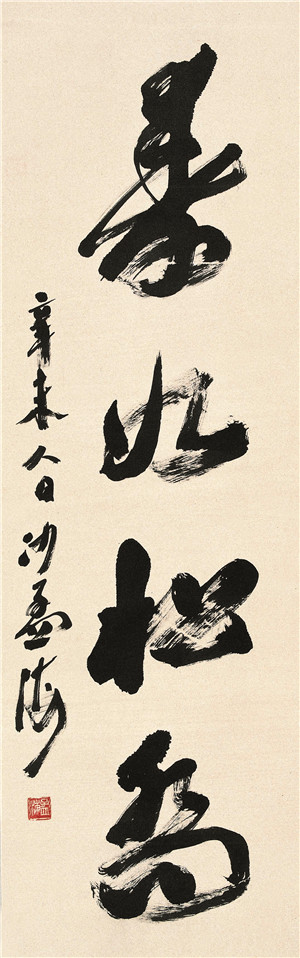 寿如松喬
辛未人日沙孟海